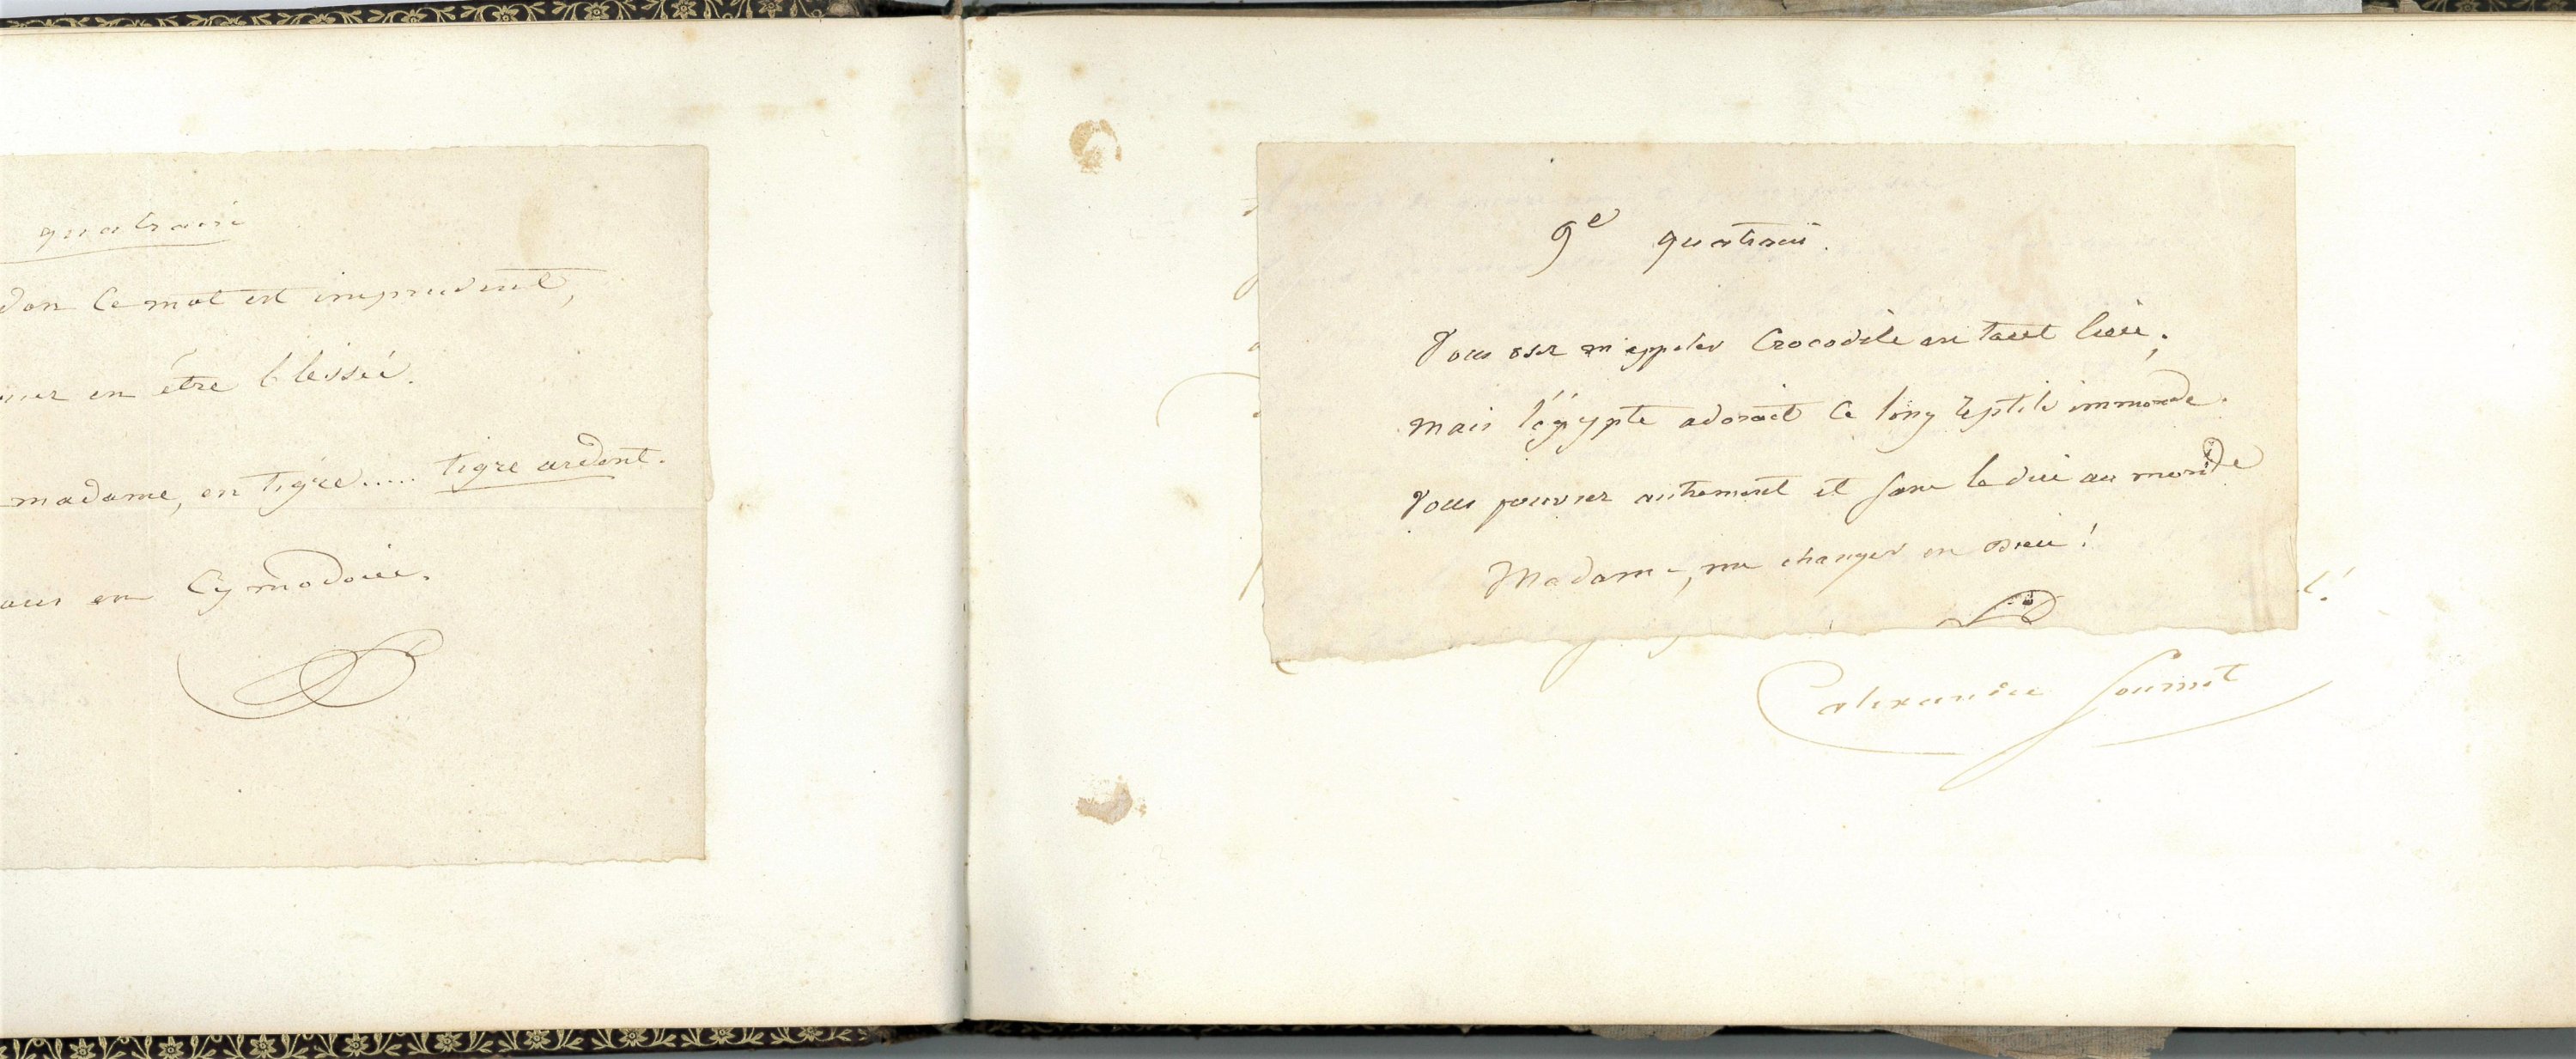 quatrain
don ce mot est imprudent,
en être blessée.
madame, en tigre..... tigre ardent.
vous en Cymodocée.
9e quatrain.
Vous osez m'appeler Crocodile en tout lieu;
mais l'égypte adorait ce long reptile immonde.
Vous pouviez autrement et sans le dire au monde
Madame, me changer en Dieu!
é!
alexandre Soumet